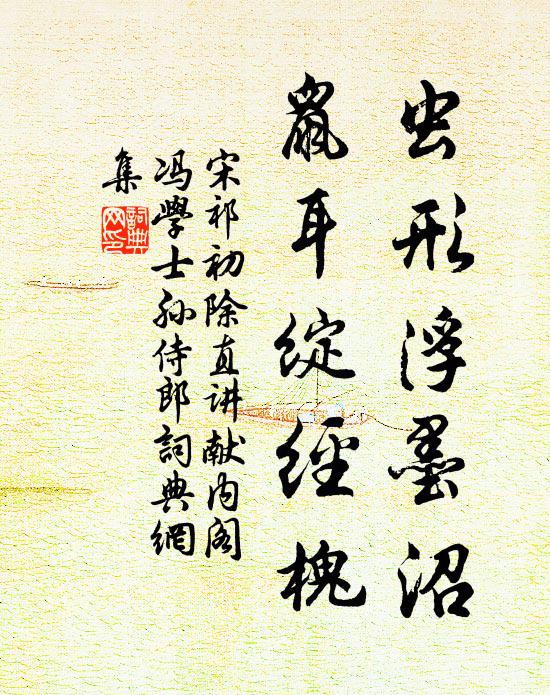 虫形浮墨沼
鼠耳绽经槐
宋祁初除直讲献内阁
冯学士孙侍郎詞典網
集
詞典网印